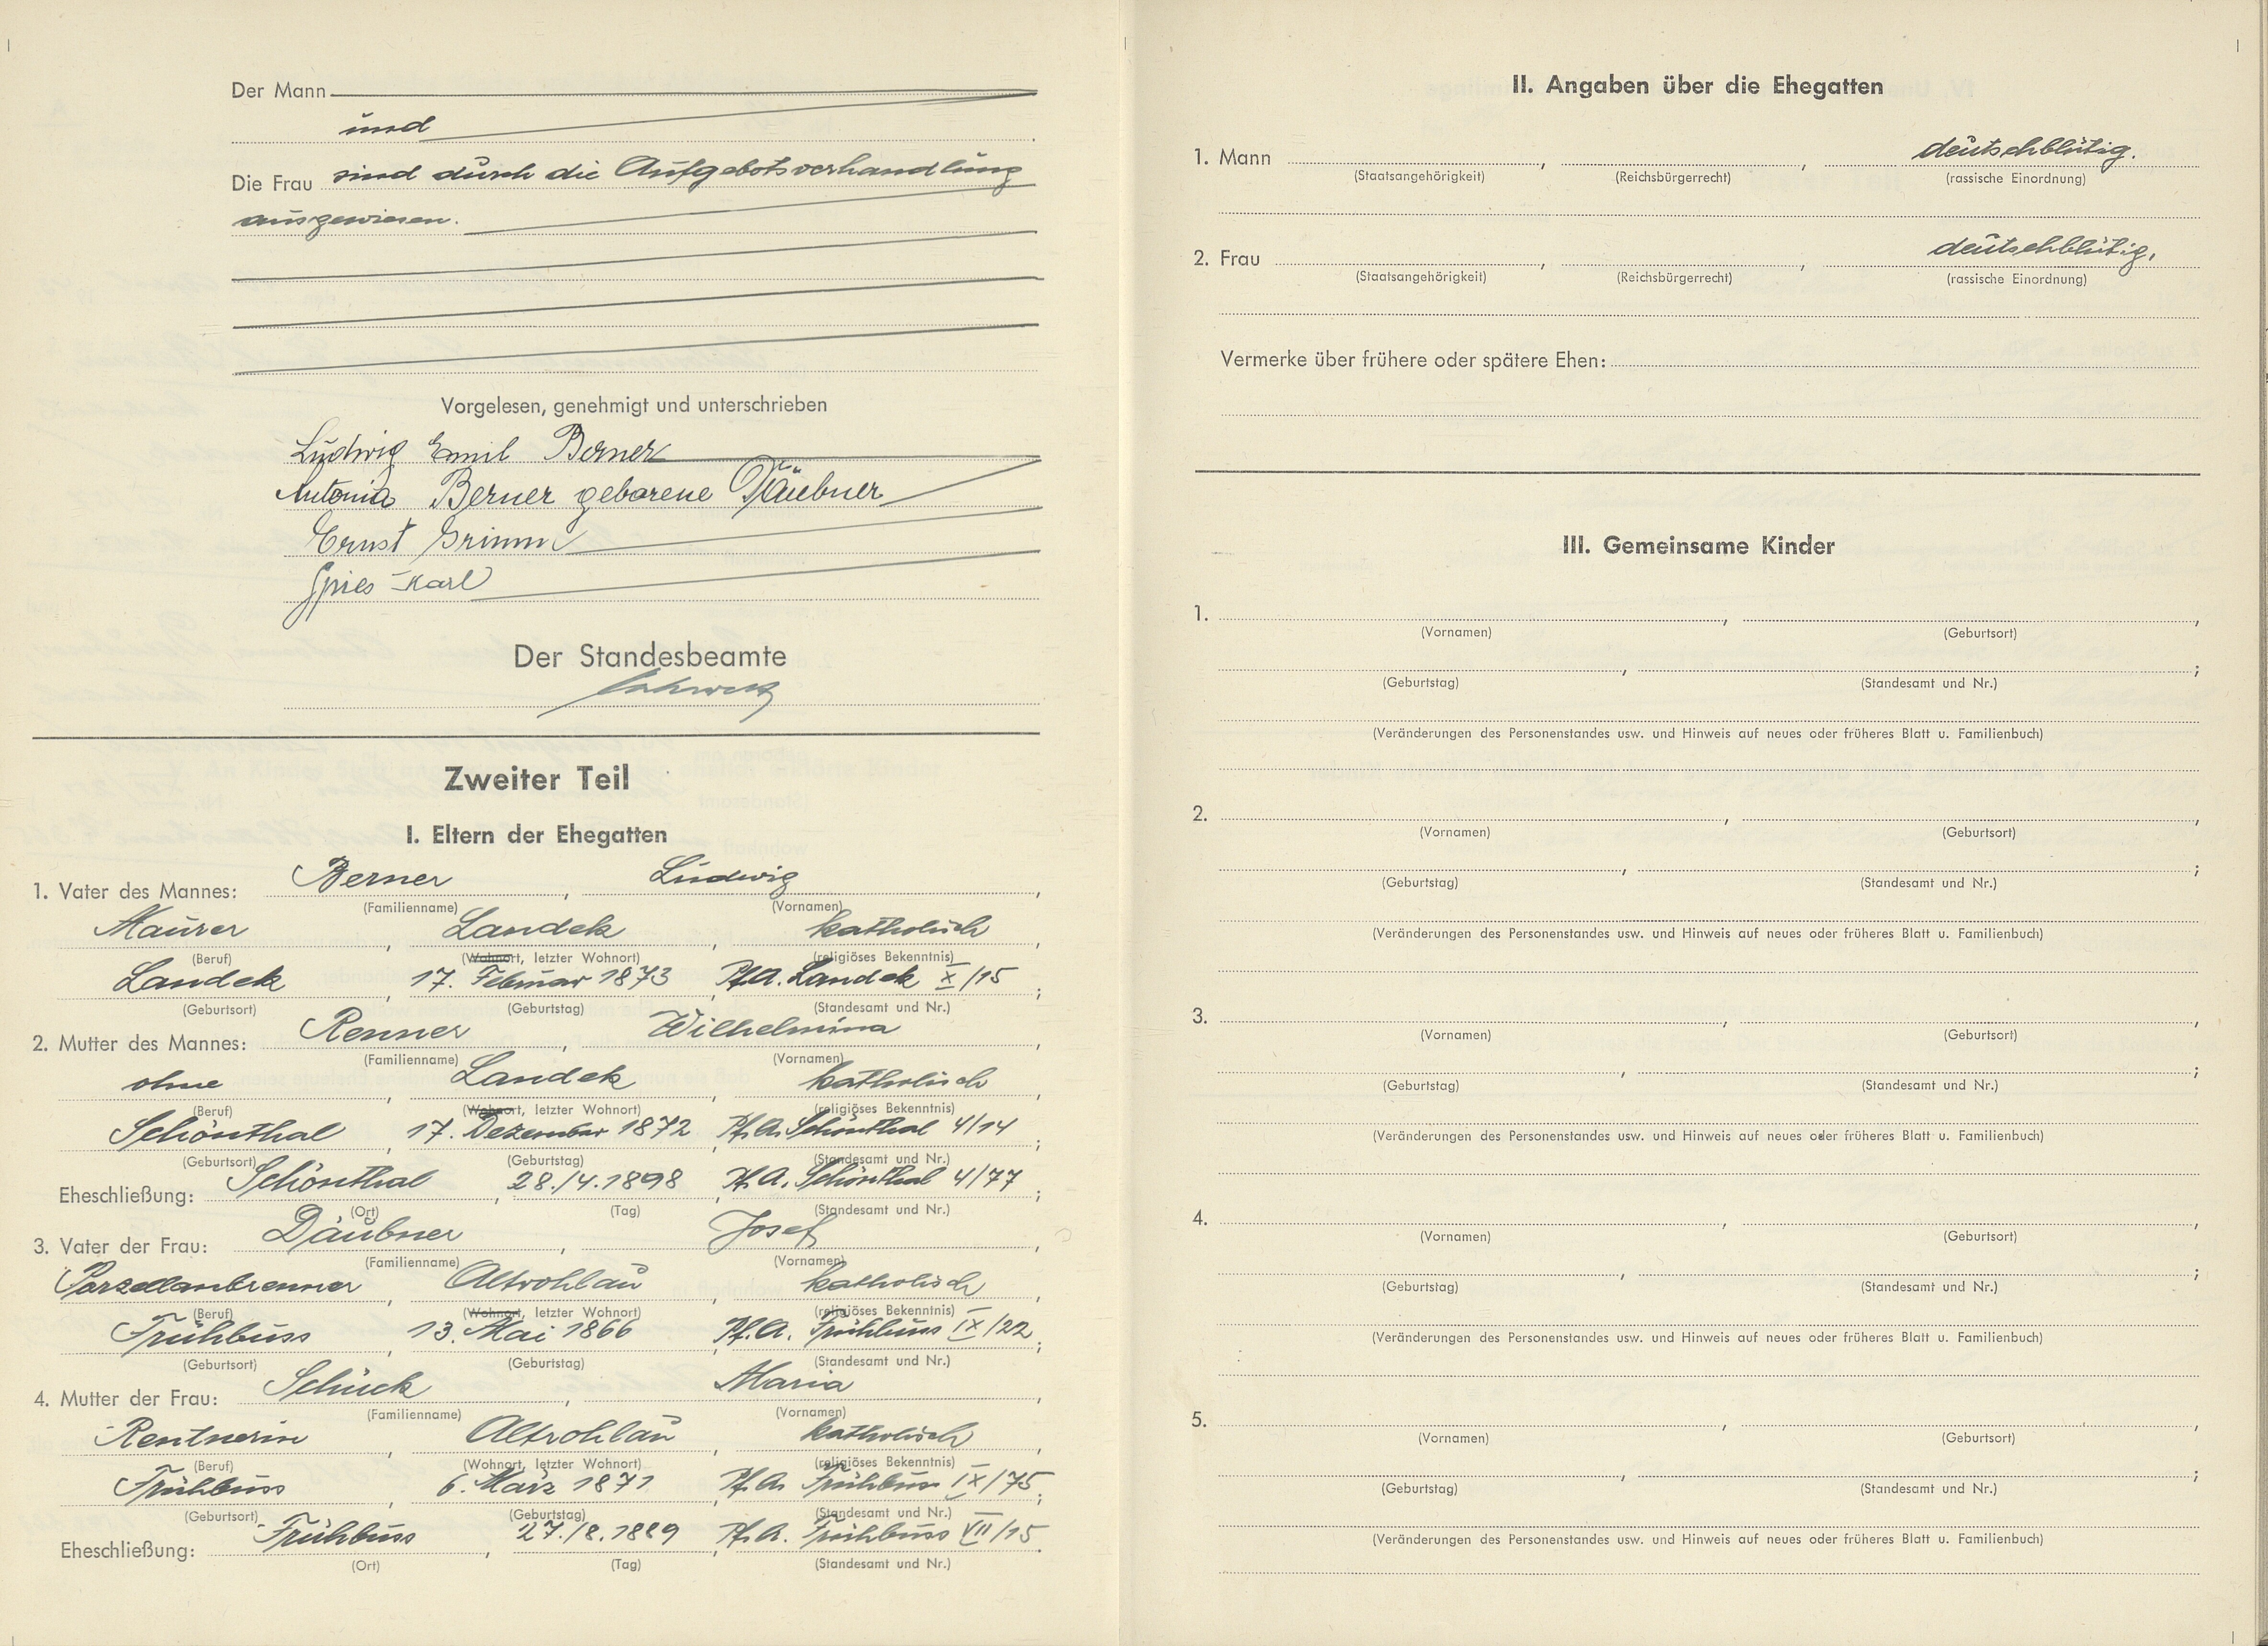 Der Mann
und
Die Frau sind durch die Aufgebotsverhandlung
ausgewiesen.
Vorgelesen, genehmigt und unterschrieben
Ludwig Emil Berner
Antonia Berner geborene Däubner
Ernst Grimm
Gries Karl
Der Standesbeamte
Zweiter Teil
I. Eltern der Ehegatten
1. Vater des Mannes: Berner, Ludwig,
(Familienname) (Vornamen)
Maurer, Landek, katholisch,
(Beruf) (Wohnort, letzter Wohnort) (religiöses Bekenntnis)
Landek, 17. Februar 1873, Pf.A. Landek X/15;
(Geburtsort) (Geburtstag) (Standesamt und Nr.)
2. Mutter des Mannes: Renner, Wilhelmina,
(Familienname) (Vornamen)
ohne, Landek, katholisch,
(Beruf) (Wohnort, letzter Wohnort) (religiöses Bekenntnis)
Schönthal, 17. Dezember 1872, Pf.A. Schönthal 4/14;
(Geburtsort) (Geburtstag) (Standesamt und Nr.)
Eheschließung: Schönthal, 28./4.1898, Pf.A. Schönthal 4/77;
(Ort) (Tag) (Standesamt und Nr.)
3. Vater der Frau: Däubner, Josef,
(Familienname) (Vornamen)
Porzellanbrenner, Altrohlau, katholisch,
(Beruf) (Wohnort, letzter Wohnort) (religiöses Bekenntnis)
Frühbuss, 13. Mai 1866, Pf.A. Frühbuss IX/22;
(Geburtsort) (Geburtstag) (Standesamt und Nr.)
4. Mutter der Frau: Schück, Maria,
(Familienname) (Vornamen)
Rentnerin, Altrohlau, katholisch,
(Beruf) (Wohnort, letzter Wohnort) (religiöses Bekenntnis)
Frühbuss, 6. März 1871, Pf.A. Frühbuss IX/75;
(Geburtsort) (Geburtstag) (Standesamt und Nr.)
Eheschließung: Frühbuss, 27./8.1889, Pf.A. Frühbuss VII/15.
(Ort) (Tag) (Standesamt und Nr.)
II. Angaben über die Ehegatten
1. Mann , , deutschblütig.
(Staatsangehörigkeit) (Reichsbürgerrecht) (rassische Einordnung)
2. Frau , , deutschblütig.
(Staatsangehörigkeit) (Reichsbürgerrecht) (rassische Einordnung)
Vermerke über frühere oder spätere Ehen:
III. Gemeinsame Kinder
1. , ,
(Vornamen) (Geburtsort)
, ;
(Geburtstag) (Standesamt und Nr.)
(Veränderungen des Personenstandes usw. und Hinweis auf neues oder früheres Blatt u. Familienbuch)
2. , ,
(Vornamen) (Geburtsort)
, ;
(Geburtstag) (Standesamt und Nr.)
(Veränderungen des Personenstandes usw. und Hinweis auf neues oder früheres Blatt u. Familienbuch)
3. , ,
(Vornamen) (Geburtsort)
, ;
(Geburtstag) (Standesamt und Nr.)
(Veränderungen des Personenstandes usw. und Hinweis auf neues oder früheres Blatt u. Familienbuch)
4. , ,
(Vornamen) (Geburtsort)
, ;
(Geburtstag) (Standesamt und Nr.)
(Veränderungen des Personenstandes usw. und Hinweis auf neues oder früheres Blatt u. Familienbuch)
5. , ,
(Vornamen) (Geburtsort)
, ;
(Geburtstag) (Standesamt und Nr.)
(Veränderungen des Personenstandes usw. und Hinweis auf neues oder früheres Blatt u. Familienbuch)